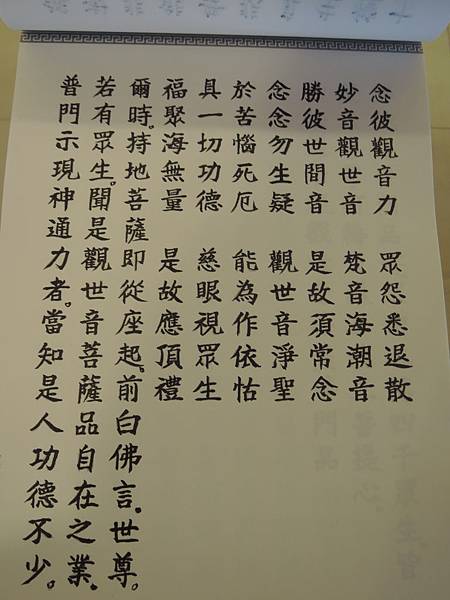 念彼觀音力　眾怨悉退散
妙音觀世音　梵音海潮音
勝彼世間音　是故須常念
念念勿生疑　觀世音淨聖
於苦惱死厄　能為作依怙
具一切功德　慈眼視眾生
福聚海無量　是故應頂禮
爾時。持地菩薩即從座起。前白佛言。世尊。
若有眾生。聞是觀世音菩薩品自在之業。
普門示現神通力者。當知是人功德不少。